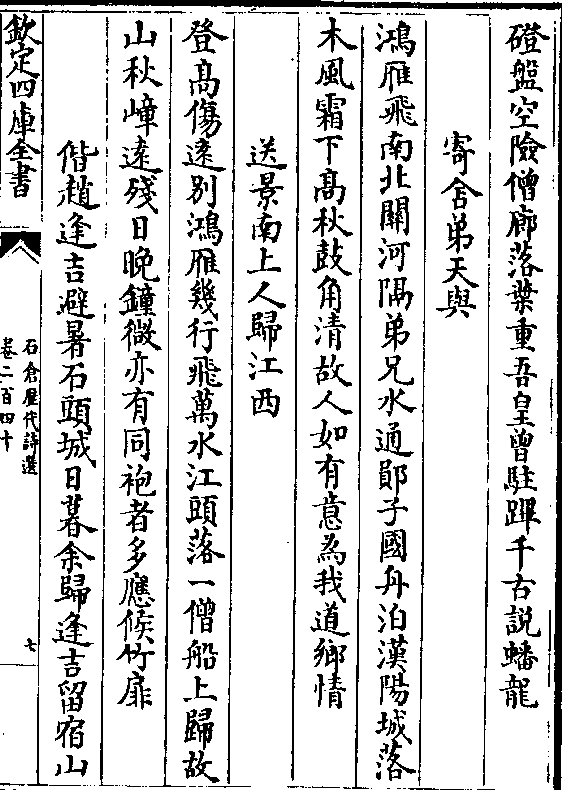 磴盤空險僧廊落葉重吾皇曾駐蹕千古說蟠龍
寄舍弟天與
鴻雁飛南北關河隔弟兄水通鄖子國舟泊漢陽城落
木風霜下高秋鼓角清故人如有意為我道鄉情
送景南上人歸江西
登高傷遠别鴻雁幾行飛萬水江頭落一僧船上歸故
山秋嶂逺殘日晚鐘微亦有同袍者多應候竹扉
偕趙逢吉避暑石頭城日暮余歸逢吉留宿山
欽定四庫全書
石倉歴代詩選
卷二百四十
七